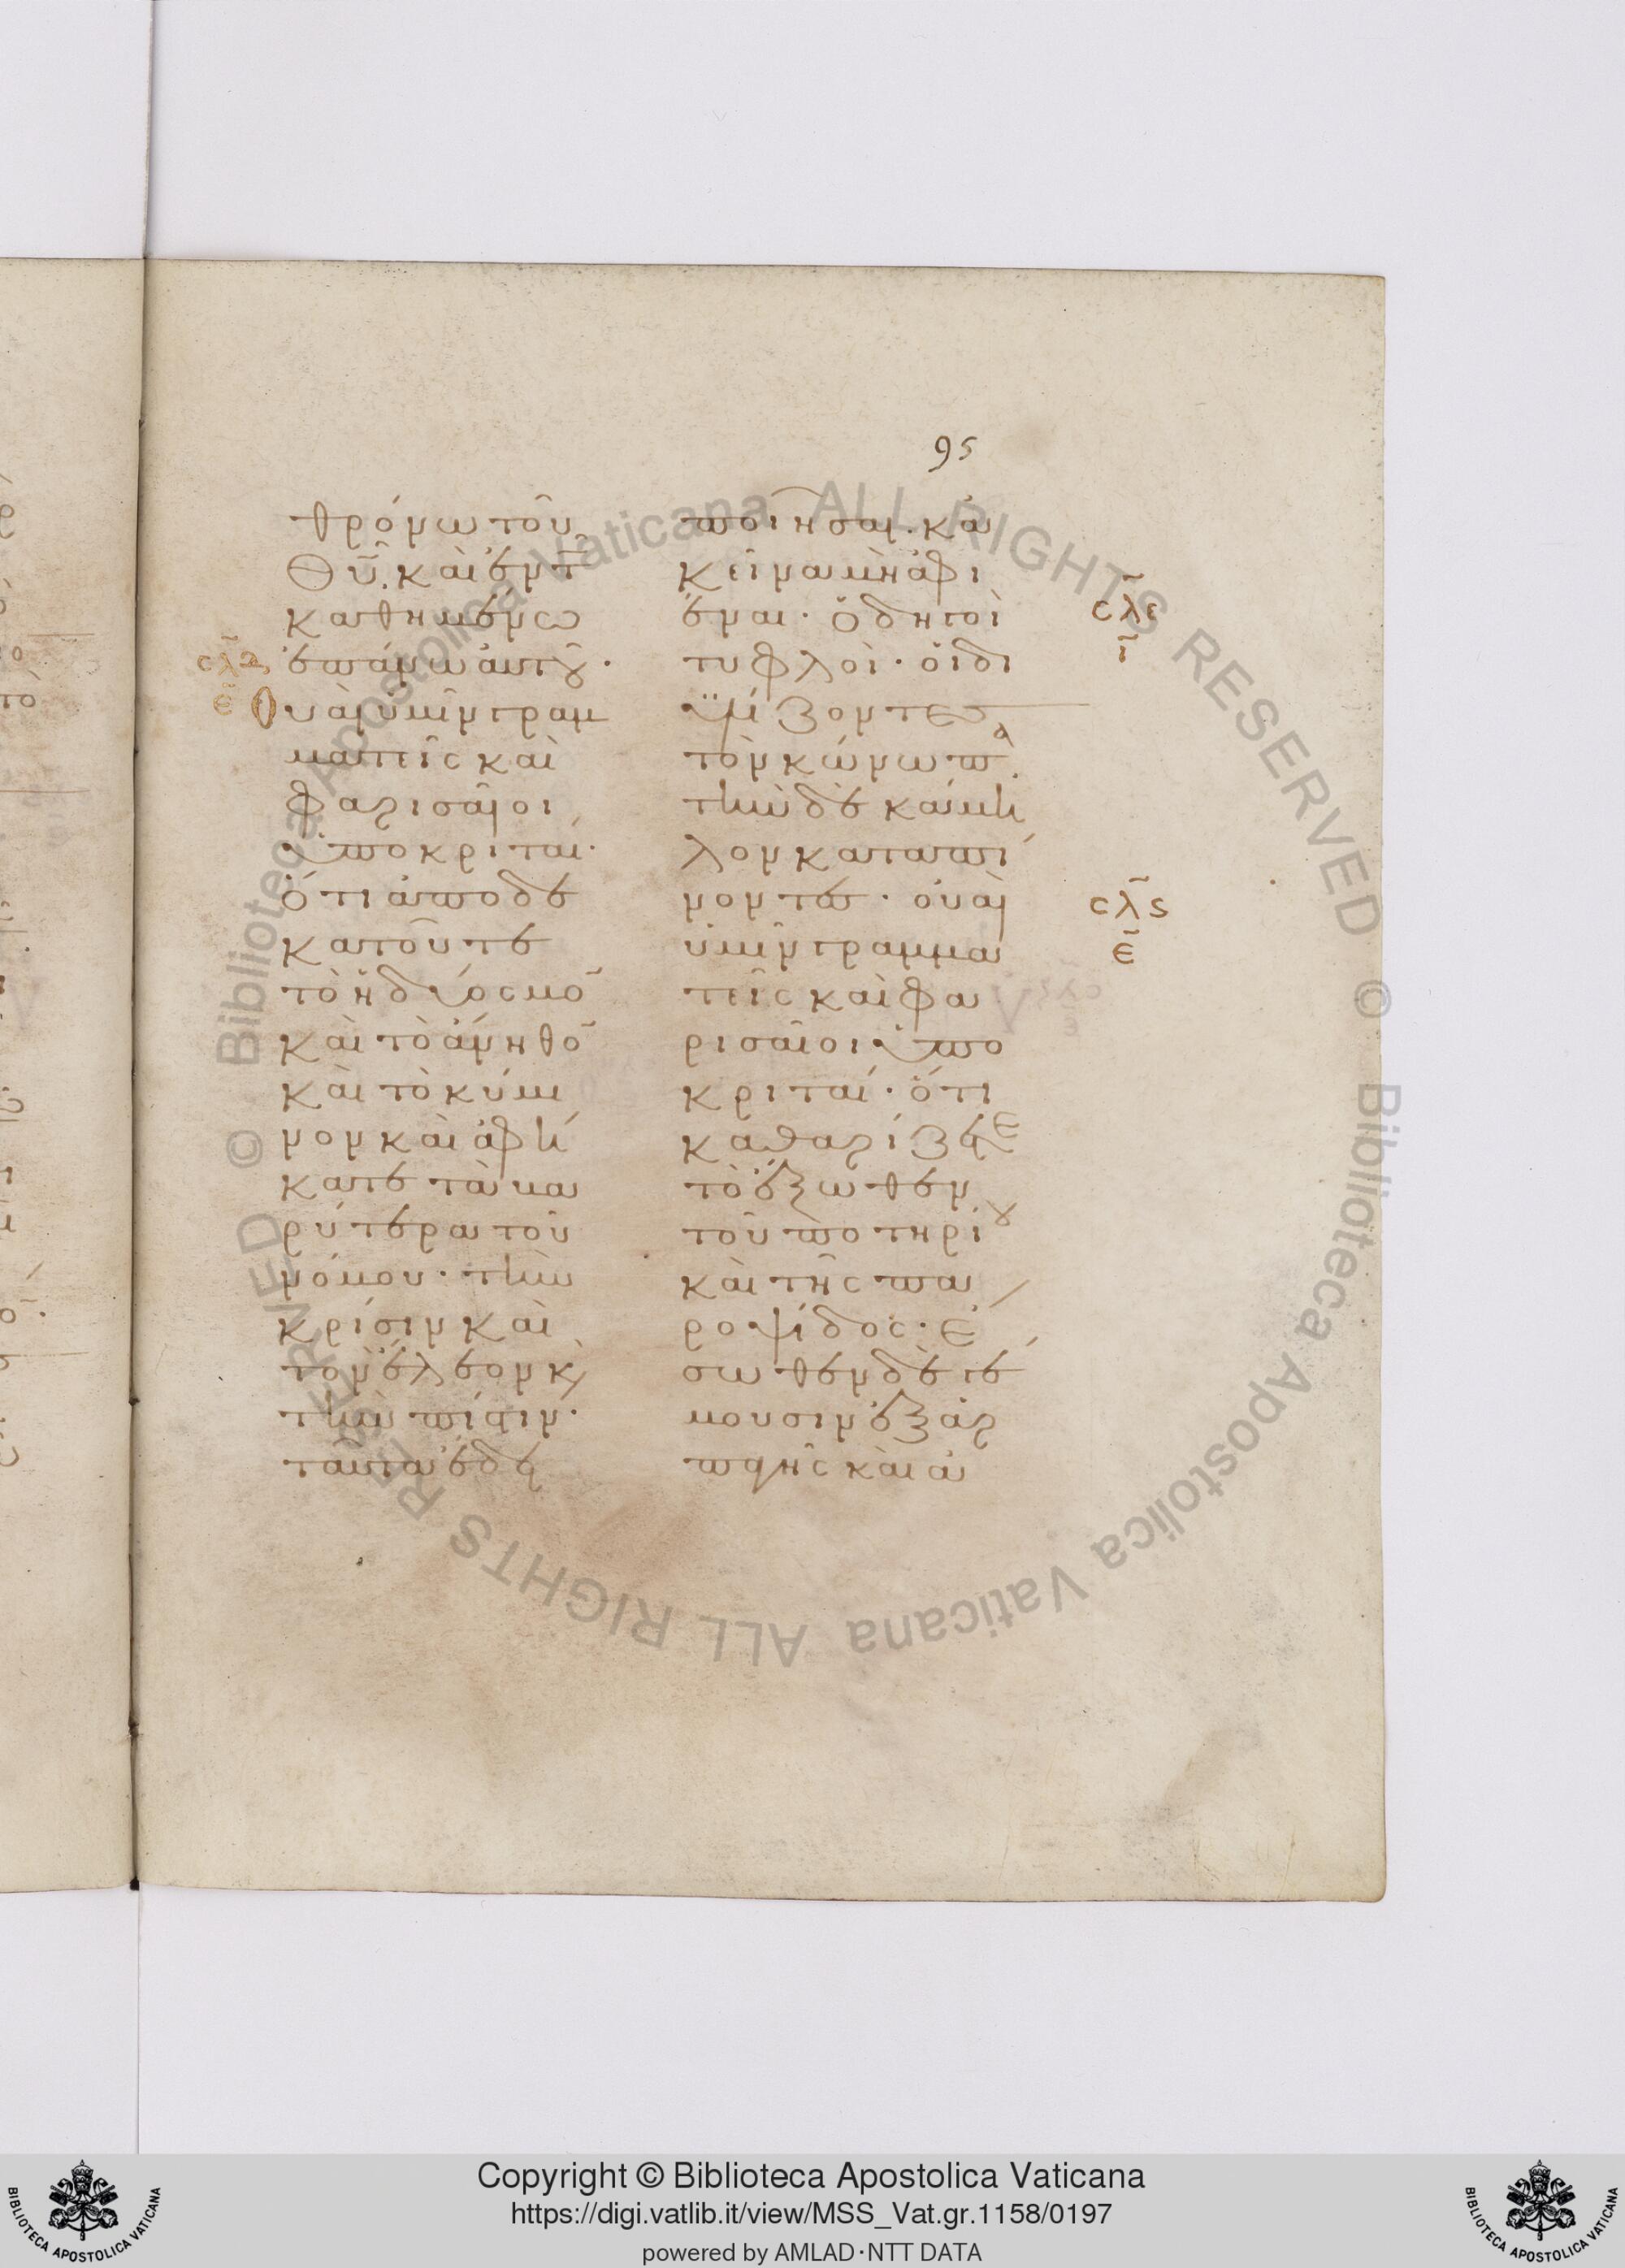 95
θρόνω τοῦ
Θῦ. καὶ ἐν τῶ̃
καθημένω
ἐπάνω ἀυτοῦ.
Οὐαὶ ὑμῖν γραμ
ματεῖς καὶ
φαρισαῖοι
ὑποκριταί.
ὅτι ἀποδε
κατοῦτε
τὸ ἡδύοσμο̄
καὶ τὸ ἄνηθο̄
καὶ τὸ κύμι
νον καὶ ἀφή
κατε τὰ βα
ρύτερα τοῦ
νόμου. τὴν
κρίσιν καὶ
τὸν ἔλεον κ̀
τὴν πίστιν.
ταῦτα ἔδει
ποιῆσαι. κἀ
κεῖνα μὴ ἀφι
έναι. ὁδηγοὶ
τυφλοὶ. οἱ δι
ϋλίζοντες
τὸν κώνωπα.
τὴν δὲ κάμη
λον καταπί
νοντες. οὐαὶ
ὑμῖν γραμμα
τεῖς καὶ φα
ρισαῖοι ὑπο
κριταί. ὅτι
καθαρίζετε
τὸ ἔξωθεν
τοῦ ποτηρίου
καὶ τῆς πα
ροψίδος. ἔ
σωθεν δὲ γέ
μουσιν ἐξ ἁρ
παγῆς καὶ ἀ
ε̄
σλ̄ε
ῑ
σλ̄ς
ε̄
© Biblioteca Apostolica Vaticana ALL RIGHTS RESERVED © Biblioteca Apostolica Vaticana ALL RIGHTS RESERVED
Copyright © Biblioteca Apostolica Vaticana
https://digi.vatlib.it/view/MSS_Vat.gr.1158/0197
powered by AMLAD·NTT DATA
BIBLIOTECA APOSTOLICA VATICANA
BIBLIOTECA APOSTOLICA VATICANA